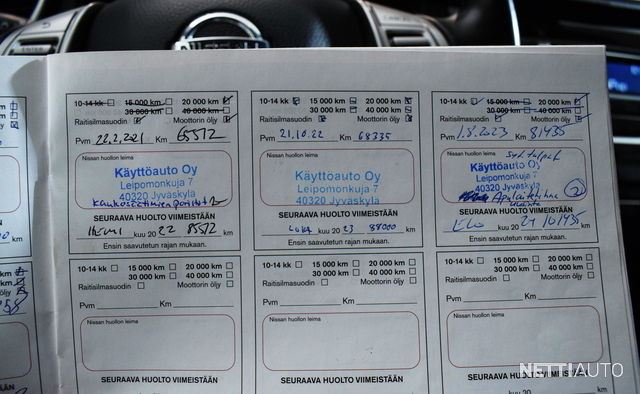 10-14 kk 15 000 km 20 000 km
30 000 km 40 000 km
Raitisilmasuodin Moottorin öljy
Pvm 22.2.2021 Km 65572
Nissan huollon leima
Käyttöauto Oy
Leipomonkuja 7
40320 Jyväskylä
SEURAAVA HUOLTO VIIMEISTÄÄN
kuu 20 22 85572 km
Ensin saavutetun rajan mukaan.
10-14 kk 15 000 km 20 000 km
30 000 km 40 000 km
Raitisilmasuodin Moottorin öljy
Pvm 21.10.22 Km 68335
Nissan huollon leima
Käyttöauto Oy
Leipomonkuja 7
40320 Jyväskylä
SEURAAVA HUOLTO VIIMEISTÄÄN
Loka kuu 20 23 88000 km
Ensin saavutetun rajan mukaan.
10-14 kk 15 000 km 20 000 km
30 000 km 40 000 km
Raitisilmasuodin Moottorin öljy
Pvm 1.8.2023 Km 81435
Nissan huollon leima
Käyttöauto Oy
Leipomonkuja 7
40320 Jyväskylä
2
SEURAAVA HUOLTO VIIMEISTÄÄN
Elo kuu 20 24 101435 km
Ensin saavutetun rajan mukaan.
10-14 kk 15 000 km 20 000 km
30 000 km 40 000 km
Raitisilmasuodin Moottorin öljy
Pvm Km
Nissan huollon leima
SEURAAVA HUOLTO VIIMEISTÄÄN
10-14 kk 15 000 km 20 000 km
30 000 km 40 000 km
Raitisilmasuodin Moottorin öljy
Pvm Km
Nissan huollon leima
SEURAAVA HUOLTO VIIMEISTÄÄN
10-14 kk 15 000 km 20 000 km
30 000 km 40 000 km
Raitisilmasuodin Moottorin öljy
Pvm Km
Nissan huollon leima
SEURAAVA HUOLTO VIIMEISTÄÄN
kuu 20
NETTIAUTO